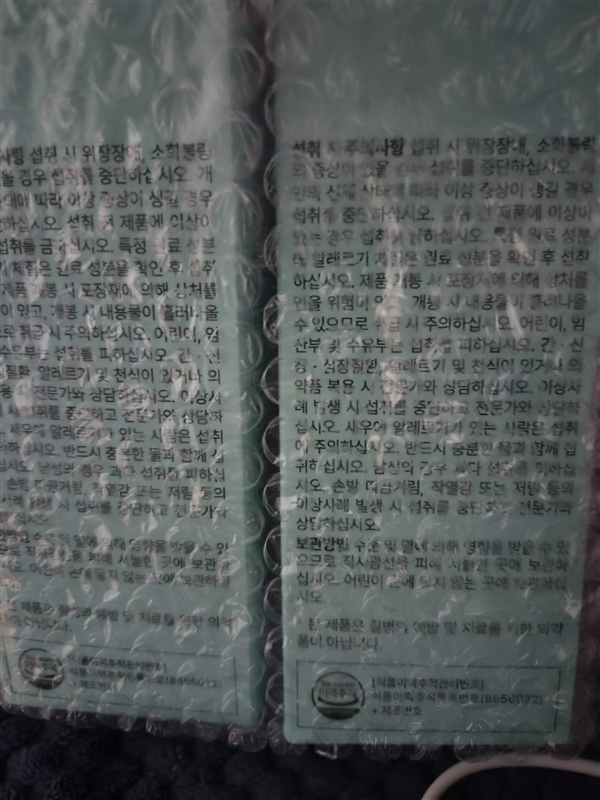 사항 섭취 시 위장장애, 소화불량
을 경우 섭취를 중단하십시오. 개
상태에 따라 이상 증상이 생길 경우
하십시오. 섭취 전 제품에 이상이
섭취를 금하십시오. 특정 원료 성분
기 체질은 원료 성분을 확인 후 섭취
제품 개봉 시 포장재에 의해 상처를
이 있고, 개봉 시 내용물이 흘러나올
로 취급 시 주의하십시오. 어린이, 임
수유부는 섭취를 피하십시오. 간·신
질환, 알레르기 및 천식이 있거나 의
용 시 전문가와 상담하십시오. 이상사
시 섭취를 중단하고 전문가와 상담하
새우에 알레르기가 있는 사람은 섭취
하십시오. 반드시 충분한 물과 함께 섭
십시오. 남성의 경우 과다 섭취를 피하십
손발 따끔거림, 작열감 또는 저림 등의
사례 발생 시 섭취를 중단하고 전문가와
십시오.
수분 및 열에 의해 영향을 받을 수 있
직사광선을 피해 서늘한 곳에 보관하
십시오. 어린이 손에 닿지 않는 곳에 보관하십
제품은 질병의 예방 및 치료를 위한 의약
아닙니다.
(식품이력추적관리번호)
식품이력추적등록번호(8856022)
+ 제조번호
섭취 시 주의사항 섭취 시 위장장애, 소화불량
의 증상이 있을 경우 섭취를 중단하십시오. 개
인의 신체 상태에 따라 이상 증상이 생길 경우
섭취를 중단하십시오. 섭취 전 제품에 이상이
있는 경우 섭취를 금하십시오. 특정 원료 성분
에 알레르기 체질은 원료 성분을 확인 후 섭취
하십시오. 제품 개봉 시 포장재에 의해 상처를
입을 위험이 있고, 개봉 시 내용물이 흘러나올
수 있으므로 취급 시 주의하십시오. 어린이, 임
산부 및 수유부는 섭취를 피하십시오. 간·신
장·심장질환, 알레르기 및 천식이 있거나 의
약품 복용 시 전문가와 상담하십시오. 이상사
례 발생 시 섭취를 중단하고 전문가와 상담하
십시오. 새우에 알레르기가 있는 사람은 섭취
에 주의하십시오. 반드시 충분한 물과 함께 섭
취하십시오. 남성의 경우 과다 섭취를 피하십
시오. 손발 따끔거림, 작열감 또는 저림 등의
이상사례 발생 시 섭취를 중단하고 전문가와
상담하십시오.
보관방법 수분 및 열에 의해 영향을 받을 수 있
으므로 직사광선을 피해 서늘한 곳에 보관하
십시오. 어린이 손에 닿지 않는 곳에 보관하십
시오.
* 본 제품은 질병의 예방 및 치료를 위한 의약
품이 아닙니다.
이력추적
(식품이력추적관리번호)
식품이력추적등록번호(8856022)
+ 제조번호